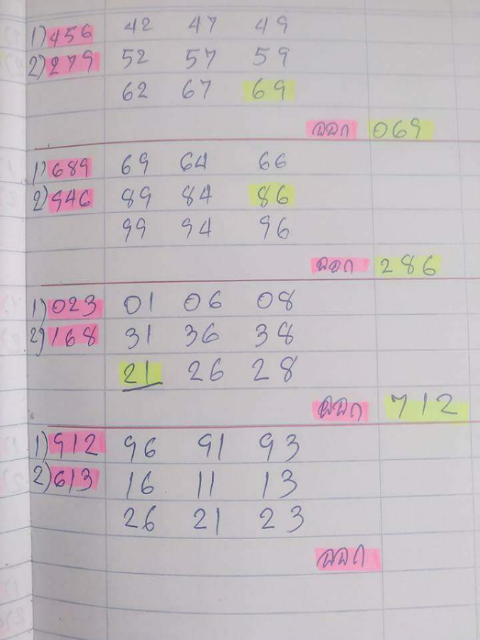 1) 456 42 47 49
2) 279 52 57 59
62 67 69
ออก 069
1) 689 69 64 66
2) 946 89 84 86
99 94 96
ออก 286
1) 023 01 06 08
2) 168 31 36 38
21 26 28
ออก 712
1) 912 96 91 93
2) 613 16 11 13
26 21 23
ออก